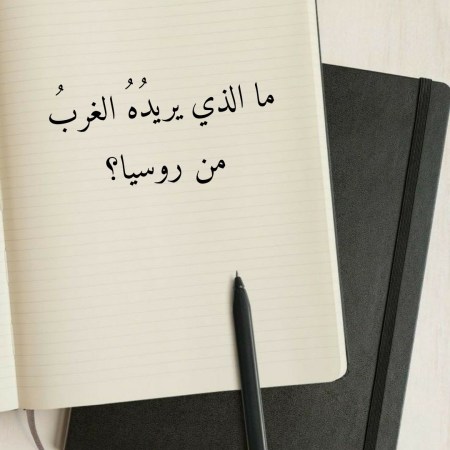 ما الذي يريدُهُ الغربُ
من روسيا؟